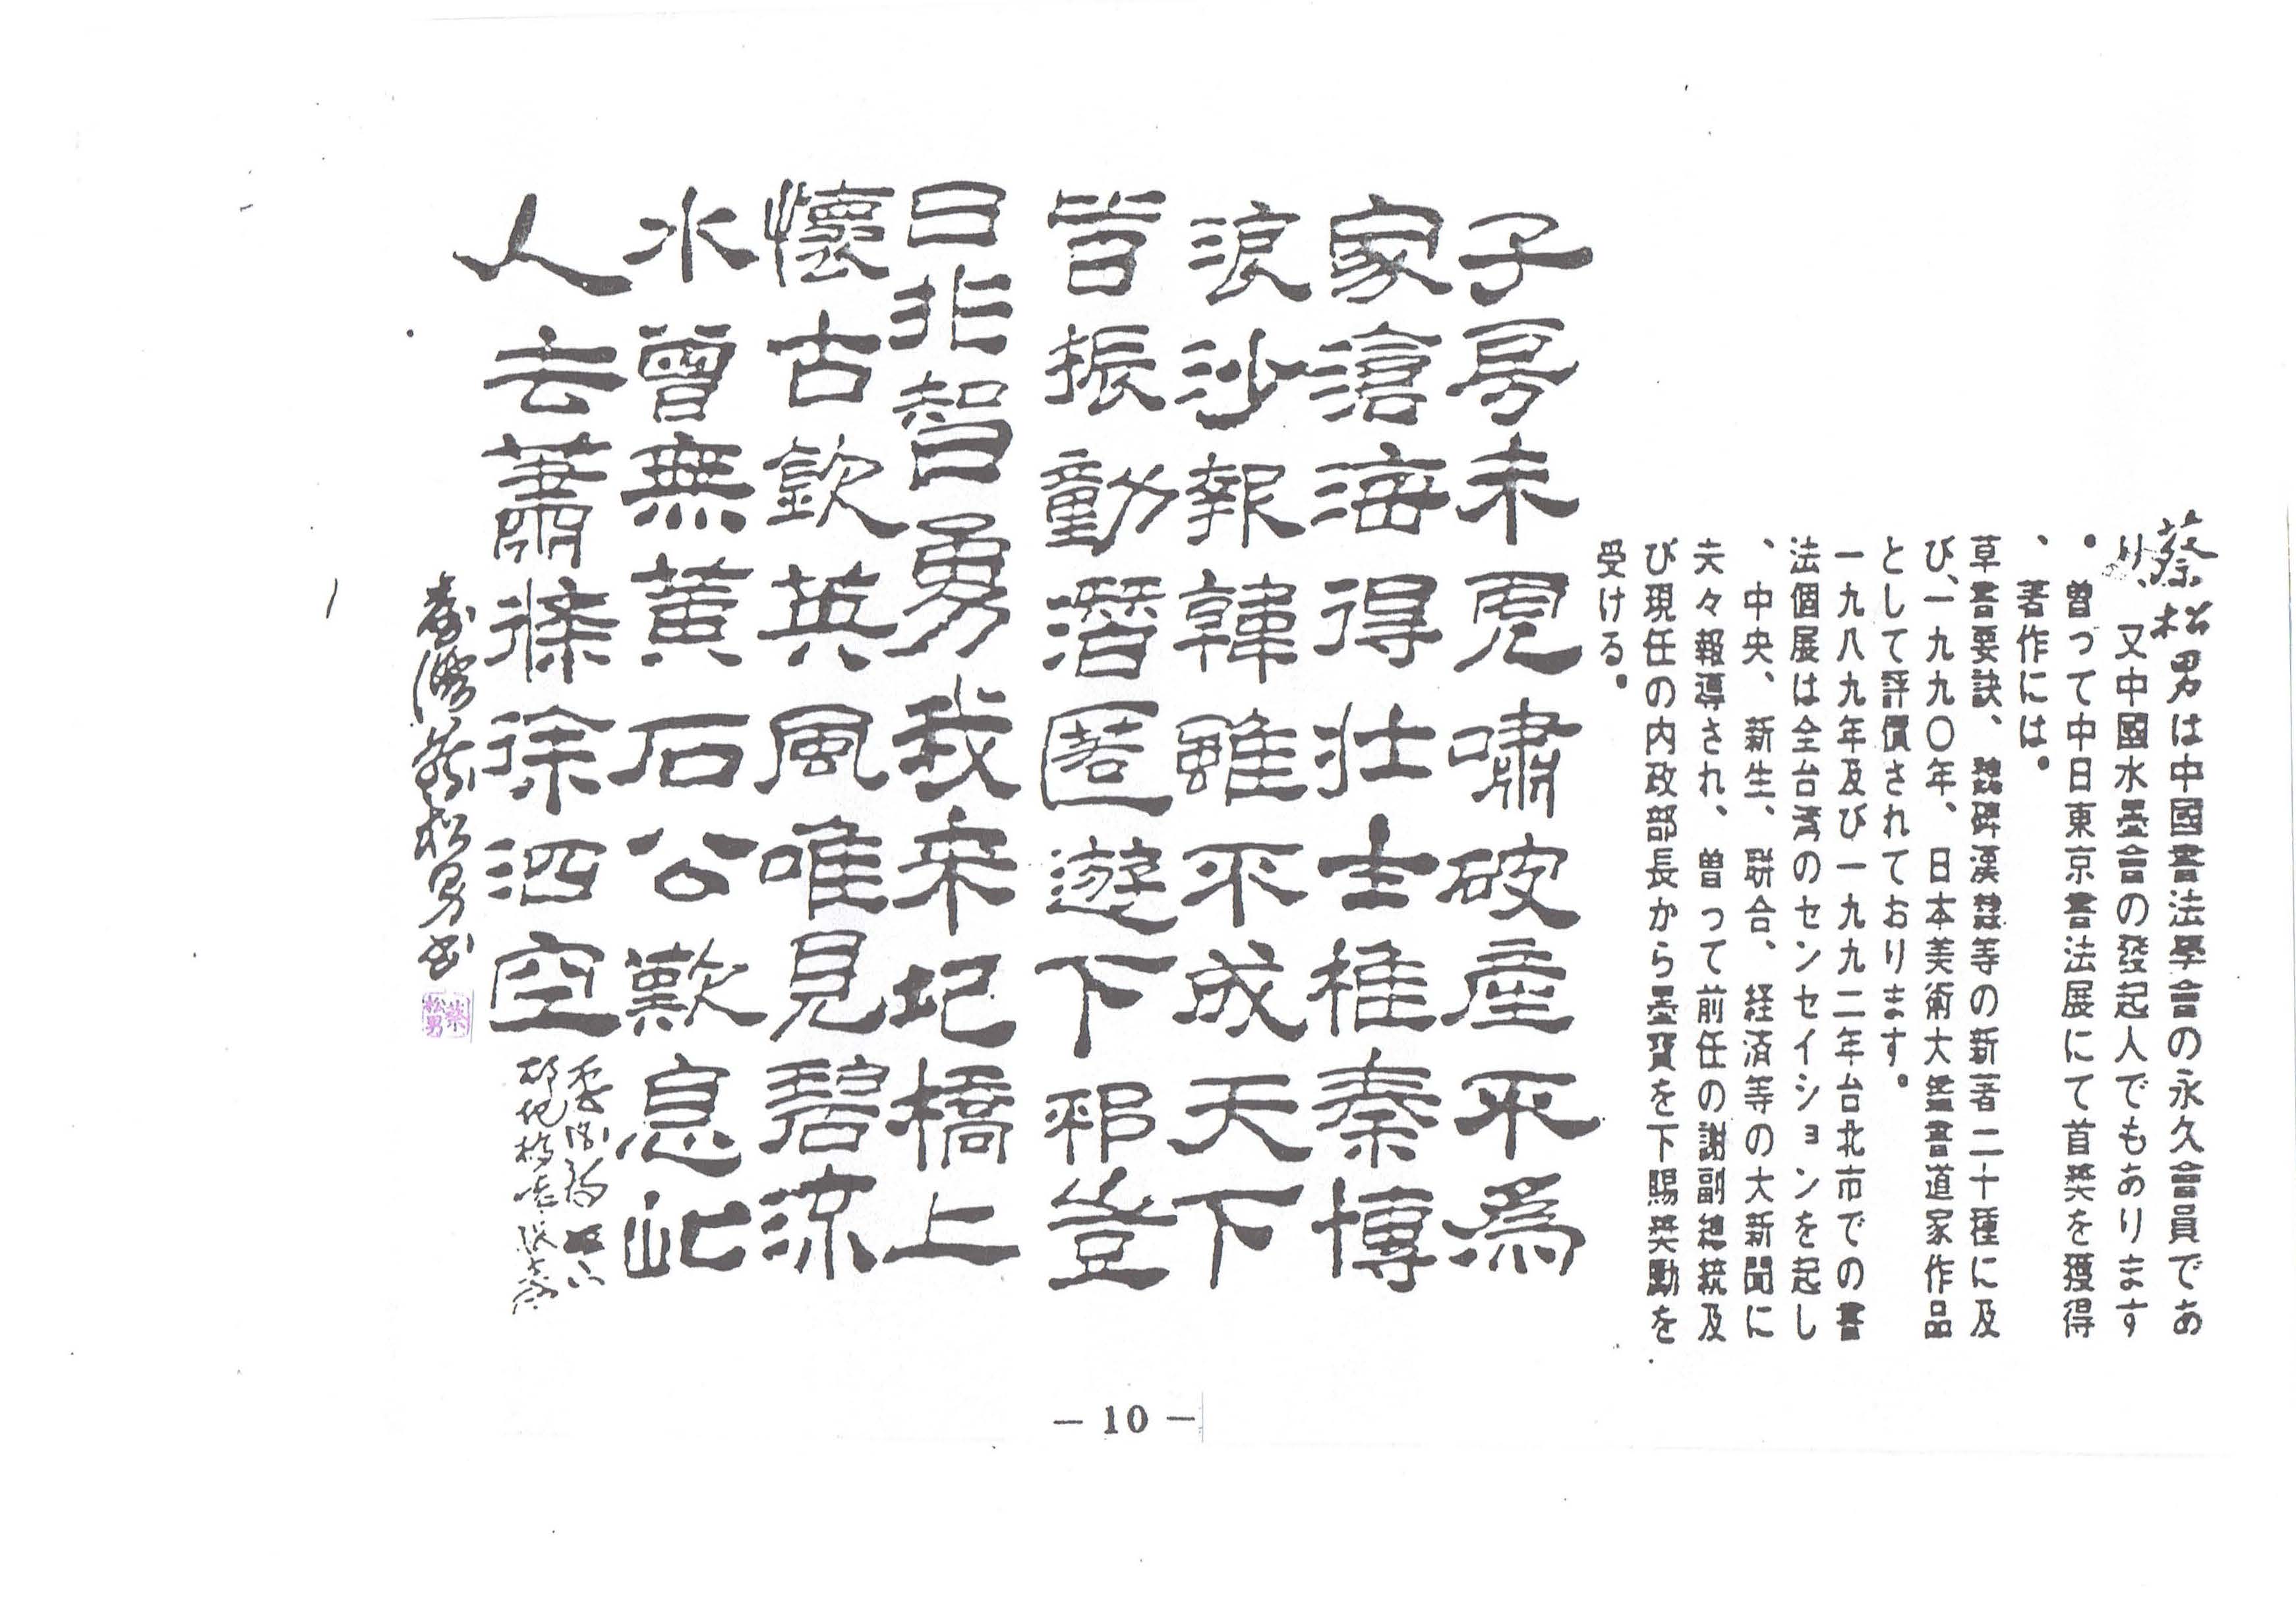 蔡松男は中國書法學會の永久會員であ
り、又中國水墨会の發起人でもあります
。曽って中日東京書法展にて首奨を獲得
、著作には。
草書要訣、魏碑漢隷等の新著二十種に及
び、一九九〇年、日本美術大鑑書道家作品
として評價されております。
一九八九年及び一九九二年台北市での書
法個展は全台湾のセンセイションを起し
、中央、新生、联合、経済等の大新聞に
夫々報導され、曽って前任の謝副総統及
び現任の内政部長から墨寶を下賜奨勵を
受ける。
子房未虎嘯破產不為
家滄海得壯士椎秦博
浪沙報韓雖不成天下
皆振動潛匿遊下邳豈
曰非智勇我来圯橋上
懷古欽英風唯見碧流
水曾無黃石公歎息此
人去蕭條徐泗空
臺灣蔡松男書
蔡松男
- 10 -